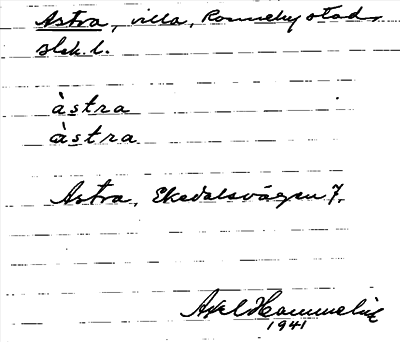 Astra, villa, Ronneby stad,
slk. l.
àstra
àstra
Astra, Ekedalsvägen 7.
Axel
1941